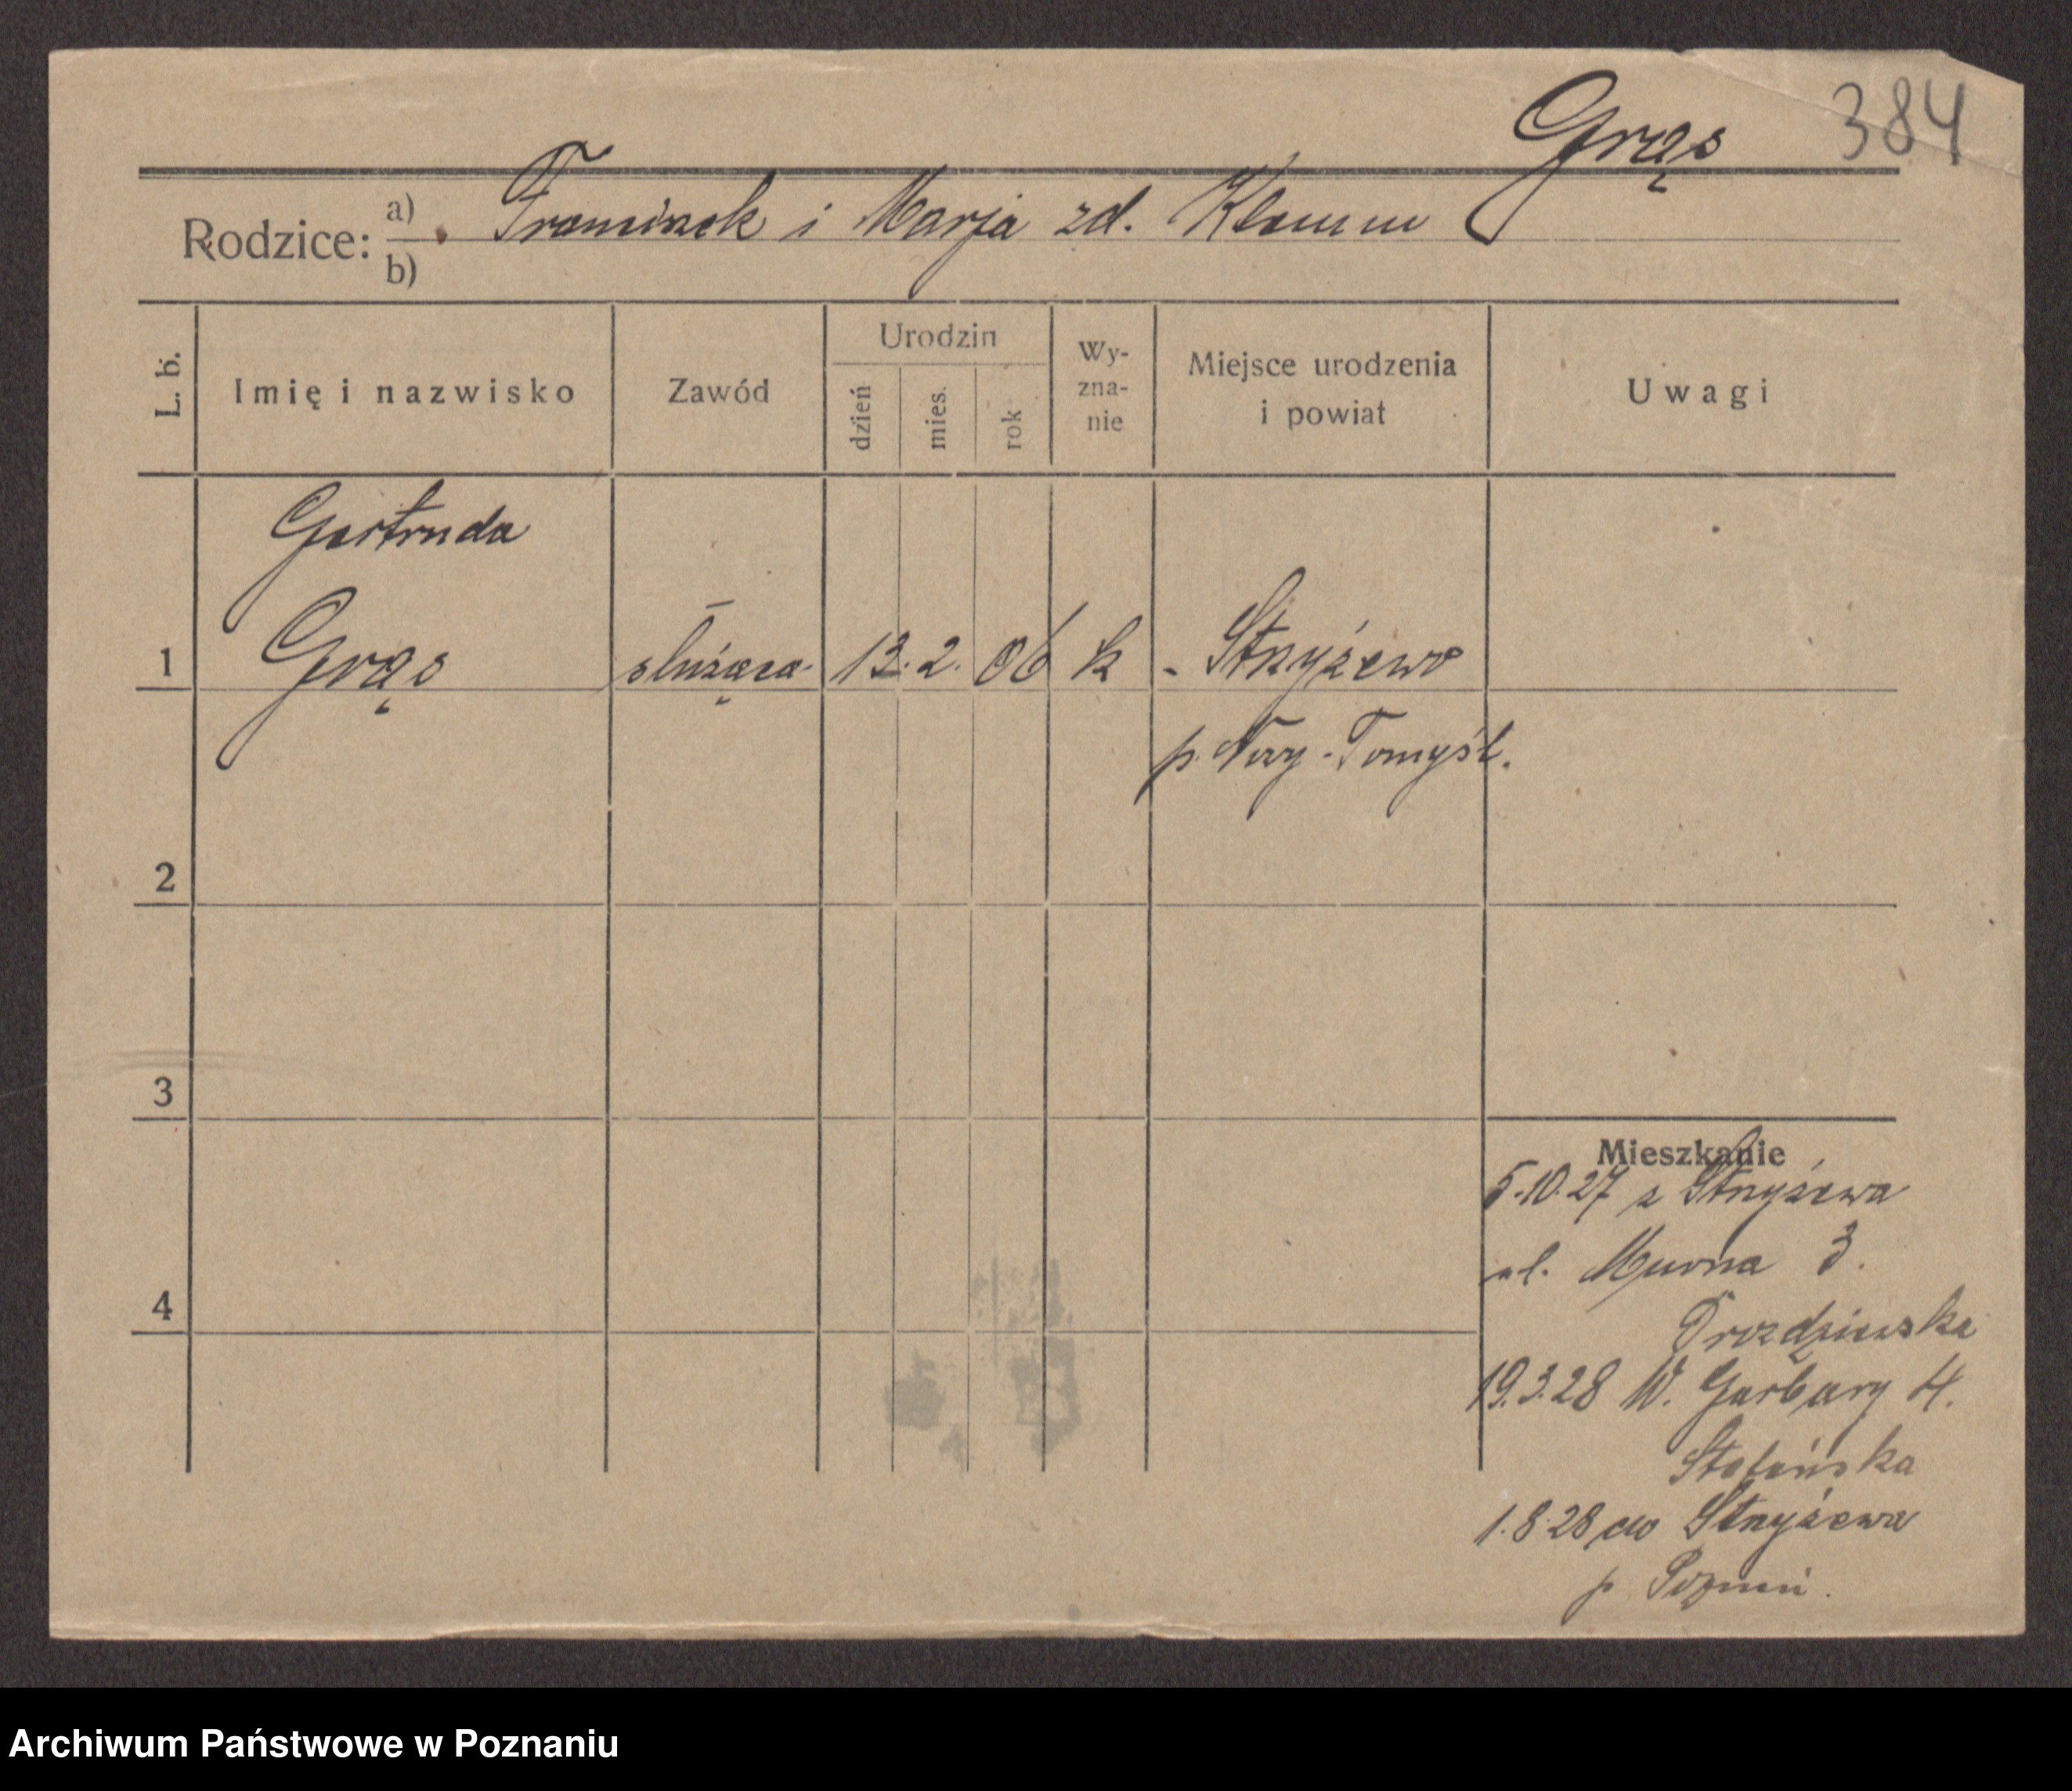 Grąs 384
Rodzice: a) Franciszek i Marja zd. Klemm
b)
L. b. Imię i nazwisko Zawód Urodzin dzień mies. rok Wy-zna-nie Miejsce urodzenia i powiat Uwagi
Gertruda
1 Grąs służąca 13. 2. 06 k - Strzyżewo
p. Nowy-Tomyśl.
2
3
Mieszkanie
5.10.27 z Strzyżewa
ul. Murna 3.
4
19.3.28 W. Garbary 4.
1.8.28 do Strzyżewa
p Poznań.
Archiwum Państwowe w Poznaniu